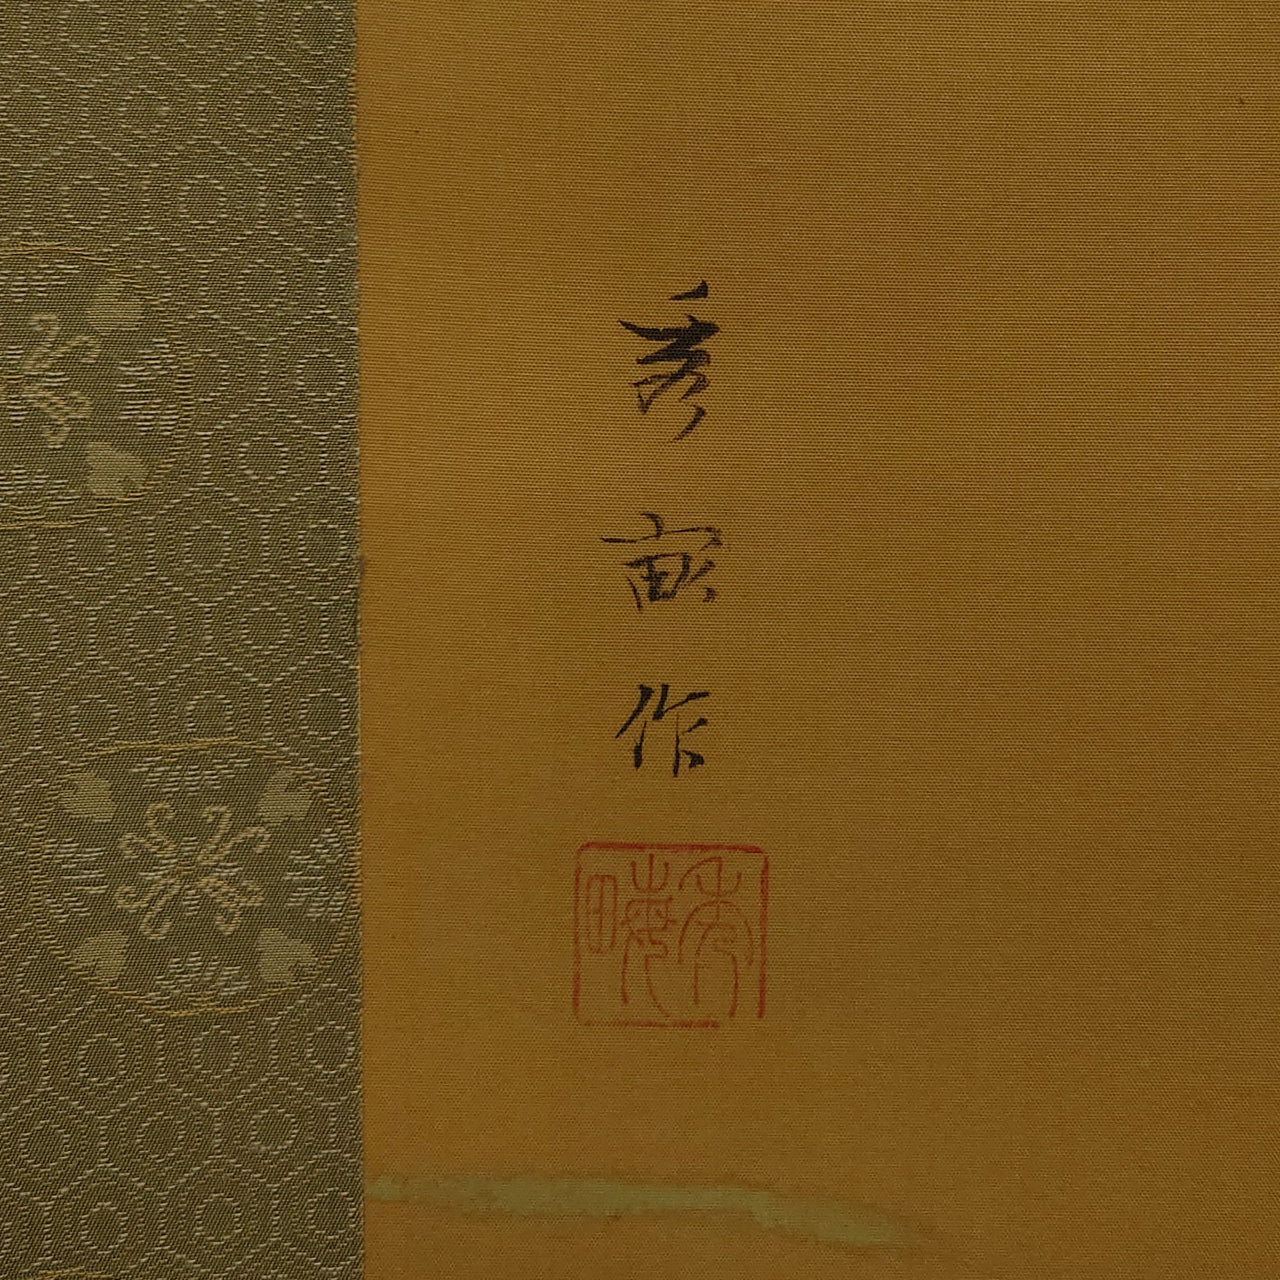 秀畝作
秀畮